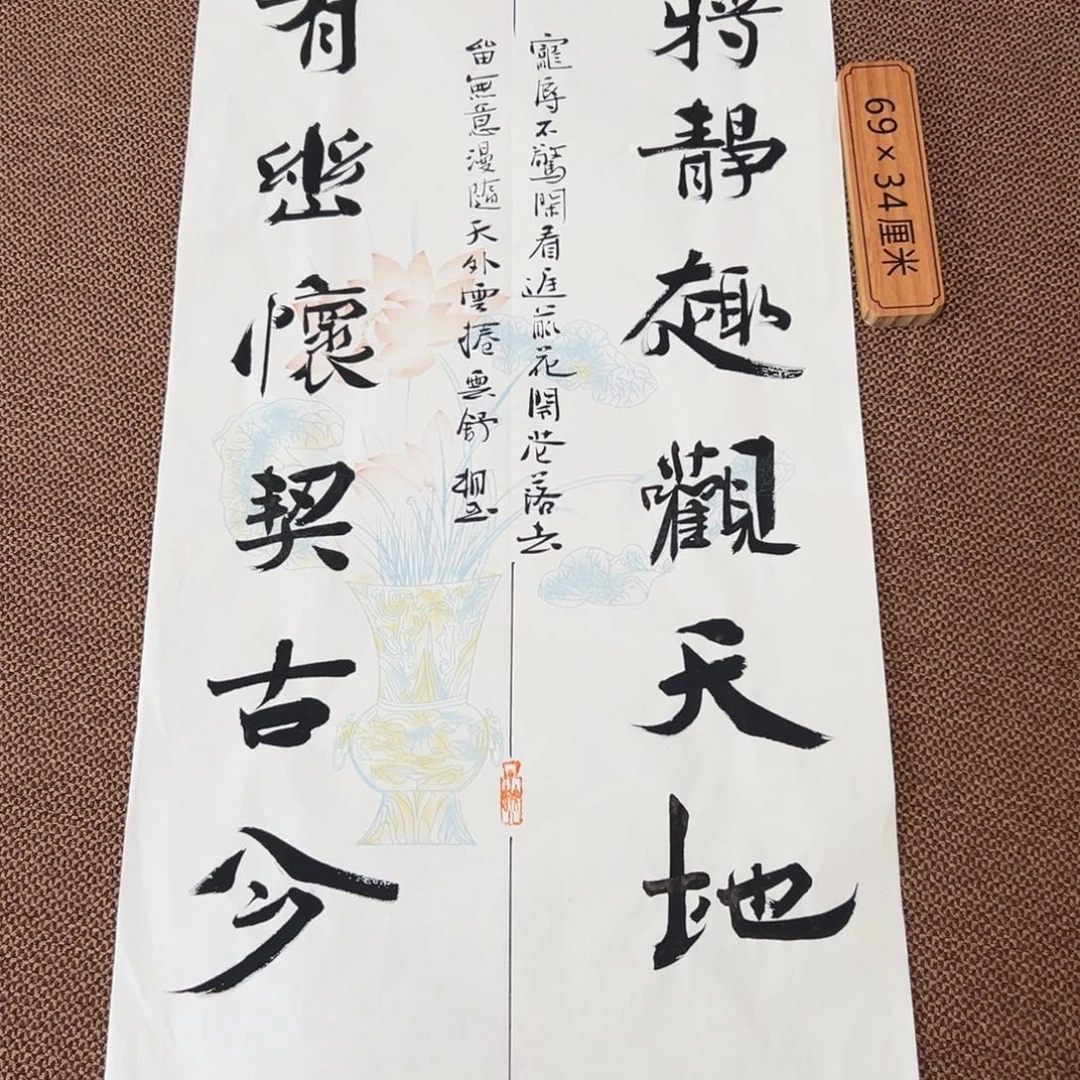 將靜趣觀天地
寵辱不驚閑看庭前花開花落去
留無意漫隨天外雲捲雲舒
有幽懷契古今
69×34厘米